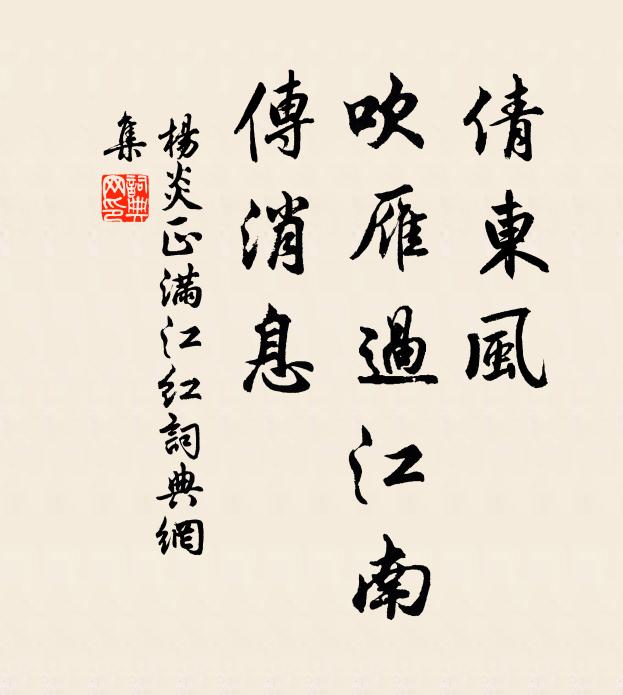 倩東風
吹雁過江南
傳消息
楊炎正滿江紅詞典網
集
詞典網印